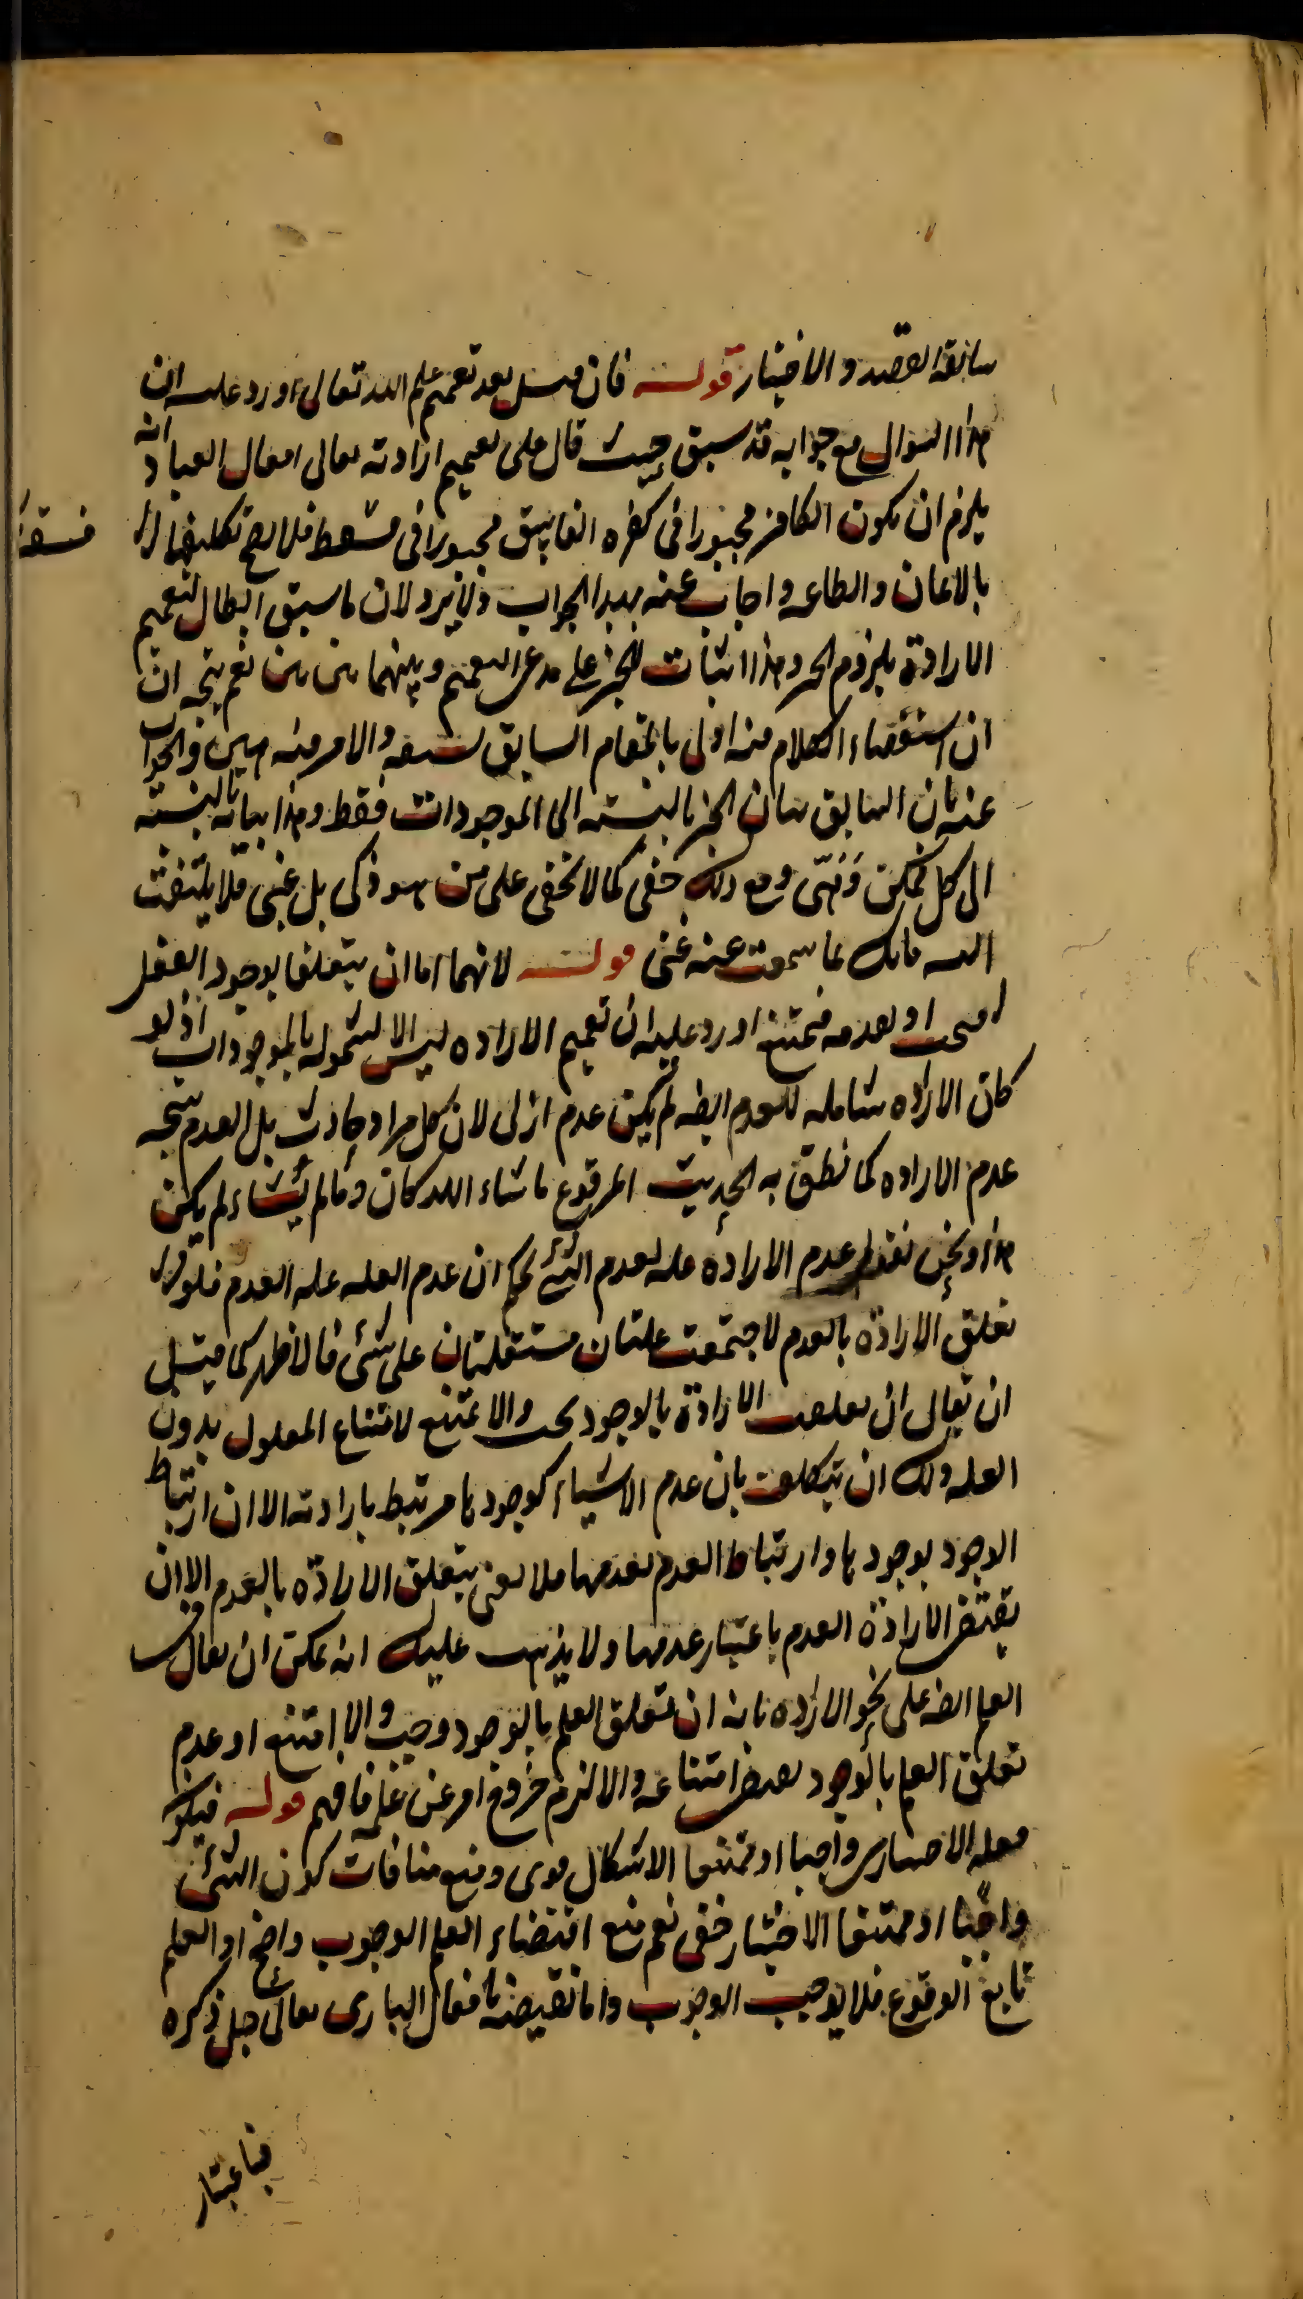 سابقة القصد والاختيار قوله فان قيل بعد تعميم علم الله تعالى اورد عليه ان
هذا السوال مع جوابه قد سبق حيث قال على تعميم ارادته تعالى افعال العباد انه
يلزم ان يكون الكافر مجبورا في كفره الفاسق مجبورا في فسقه فلا يصح تكليفهما
فسقه
بالايمان والطاعه واجاب عنه بهذا الجواب ولا يرد لان ما سبق ابطال لتعميم
الارادة بلزوم الجبر وهذا اثبات للجبر على مدعى التعميم وبينهما بين بين نعم يتجه ان
ان استقصاء الكلام منه اولى بالمقام السابق والامر منه هين والجواب
عنه بان السابق بيان الجبر بالنسبة الى الموجودات فقط وهذا بيانه بالنسبة
الى كل ممكن ومع ذلك خفى كما لا يخفى على من هو ذكى بل غبى فلا يلتفت
اليه فانك بما سمعت عنه غنى قوله لانهما اما ان يتعلقا بوجود الفعل
فيجب او بعدمه فيمتنع اورد عليه ان تعميم الاراده ليس الا لشموله بالموجودات اذ لو
كان الاراده شامله للعدم ايضه لم يكن عدم ازلى لان كل مراد حادث بل العدم نتيجه
عدم الاراده كما نطق به الحديث المرفوع ما شاء الله كان وما لم يشاء لم يكن
هذا ونحن نقول عدم الارادة عله لعدم الشئ بحكم ان عدم العله عله العدم فلو
تعلق الارادة بالعدم لاجتمعت علتان مستقلتان على شئ فالاظهر كما قيل
ان يقال ان تعلقت الارادة بالوجود يجب والا يمتنع لامتناع المعلول بدون
العله ولك ان تتكلف بان عدم الاشياء كوجودها مرتبط بارادته الا ان ارتباط
الوجود بوجودها وارتباط العدم بعدمها فلا يعنى بتعلق الارادة بالعدم الا ان
يقتضى الارادة العدم باعتبار عدمها ولا يذهب عليك انه يمكن ان يقال في
العلم ايضه على نحو الاراده بانه ان تعلق العلم بالوجود وجب والا امتنع او عدم
تعلق العلم بالوجود امتناعه والا لزم خروج امر عن علمه فافهم قوله فيكون
فعله الاختيارى واجبا او ممتنعا الاشكال قوى ومنع منافات كون الشئ
واجبا او ممتنعا الاختيار خفى نعم منع اقتضاء العلم الوجوب واضح اذ العلم
تابع الوقوع فلا يوجب الوجوب واما نقيضه بافعال البارى تعالى جل ذكره
فباعتبار